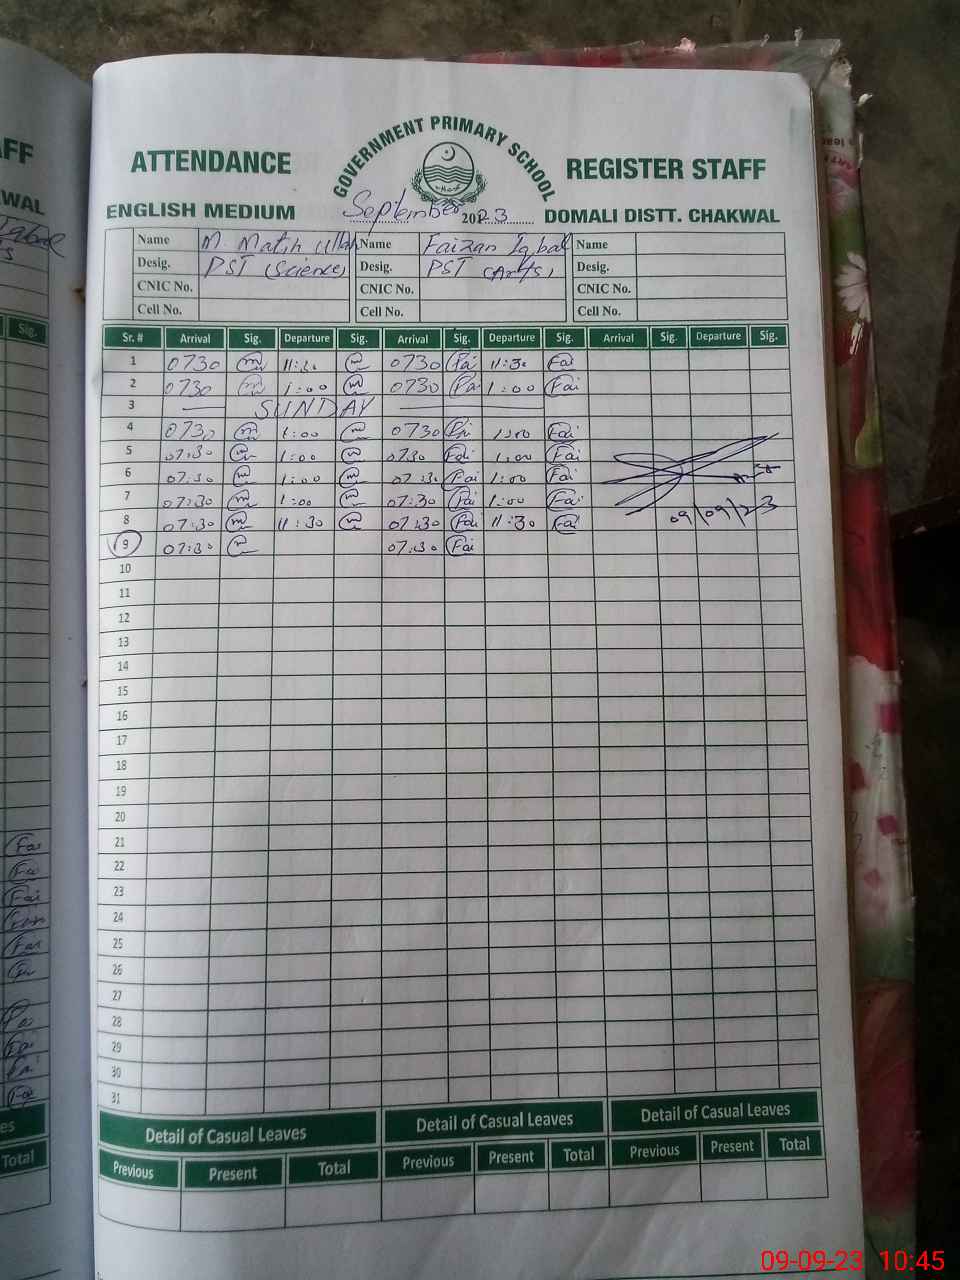 GOVERNMENT PRIMARY SCHOOL
ATTENDANCE REGISTER STAFF
ENGLISH MEDIUM September 2023 DOMALI DISTT. CHAKWAL
Name M. Matih Ullah Name Faizan Iqbal Name
Desig. PST (Science) Desig. PST (Arts) Desig.
CNIC No. CNIC No. CNIC No.
Cell No. Cell No. Cell No.
Sr. # Arrival Sig. Departure Sig. Arrival Sig. Departure Sig. Arrival Sig. Departure Sig.
1 0730 m 11:30 m 0730 Fai 11:30 Fai
2 0730 m 1:00 m 0730 Fai 1:00 Fai
3 SUNDAY
4 0730 m 1:00 m 0730 Fai 1:00 Fai
5 07:30 m 1:00 m 0730 Fai 1:00 Fai
6 07:30 m 1:00 m 07:30 Fai 1:00 Fai
7 07:30 m 1:00 m 07:30 Fai 1:00 Fai
8 07:30 m 11:30 m 07:30 Fai 11:30 Fai 09/09/23
9 07:30 m 07:30 Fai
10
11
12
13
14
15
16
17
18
19
20
21
22
23
24
25
26
27
28
29
30
31
Detail of Casual Leaves Detail of Casual Leaves Detail of Casual Leaves
Previous Present Total Previous Present Total Previous Present Total
AFF
WAL
Iqbal
Sig.
Fai
Fai
Fai
Fai
Fai
Fai
Fai
Fai
es
Total
09-09-23 10:45